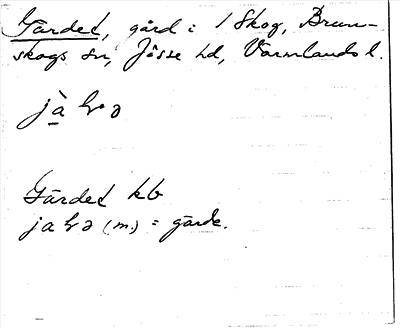 Gärdet, gård i 1 Skog, Brun-
skogs sn, Jösse hd, Värmlands l.
Gärdet kb
(m.) = gärde.